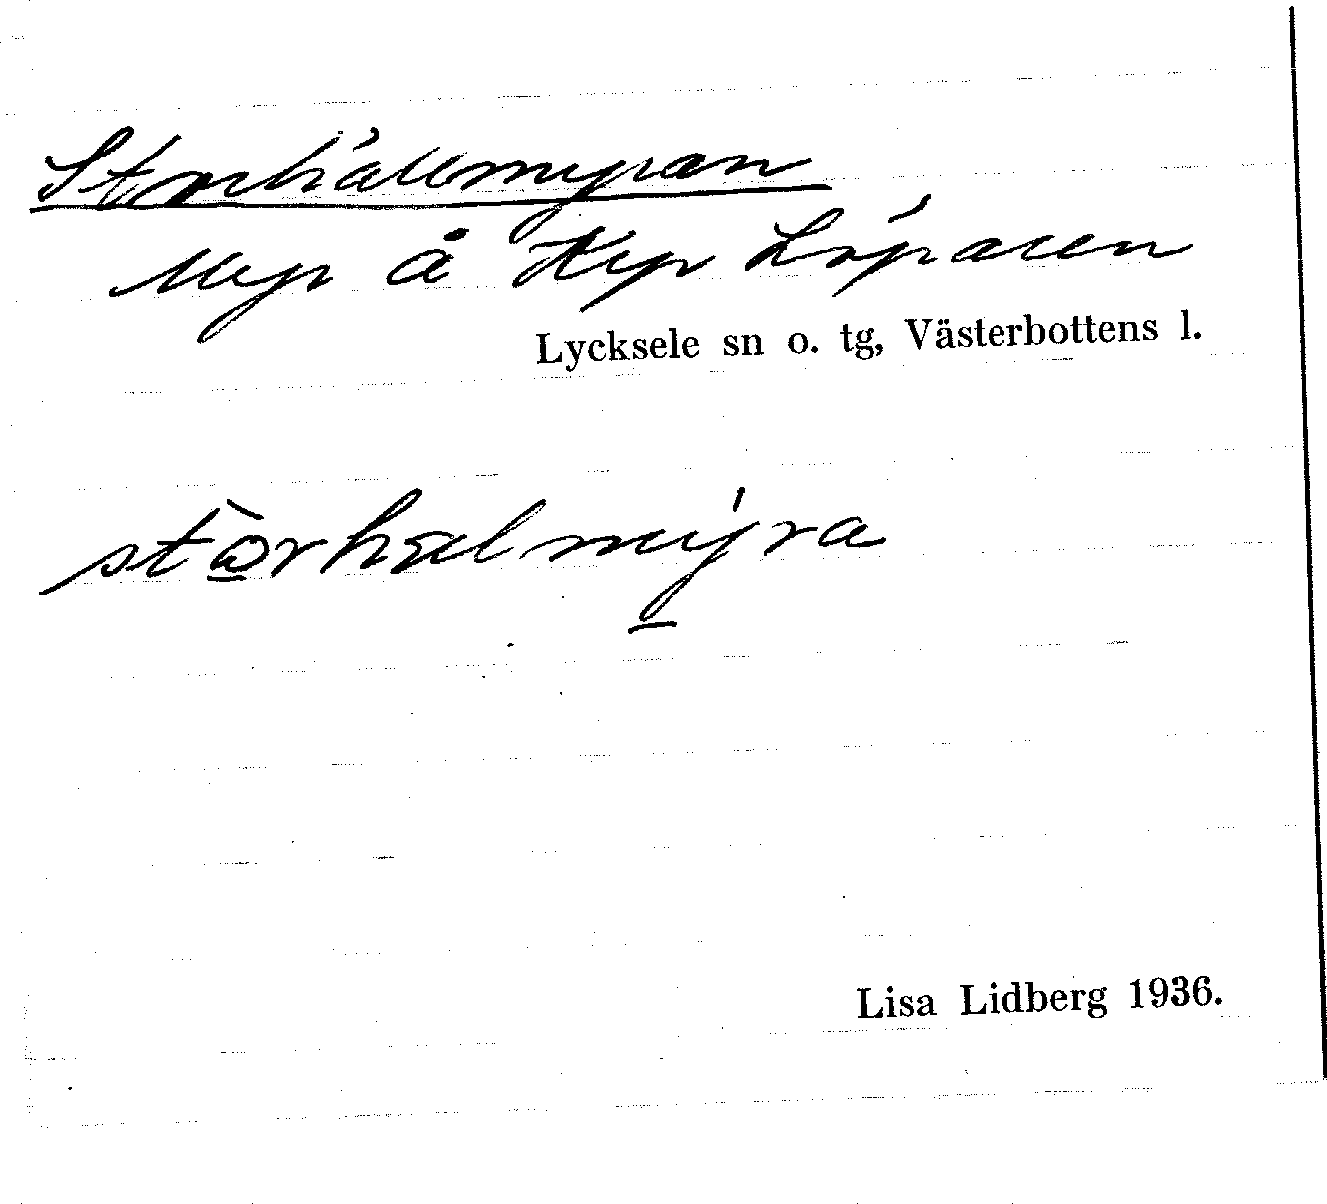 Storhällmyran
Myr å Krp Löparen
Lycksele sn o. tg, Västerbottens l.
stòrhælmýra
Lisa Lidberg 1936.